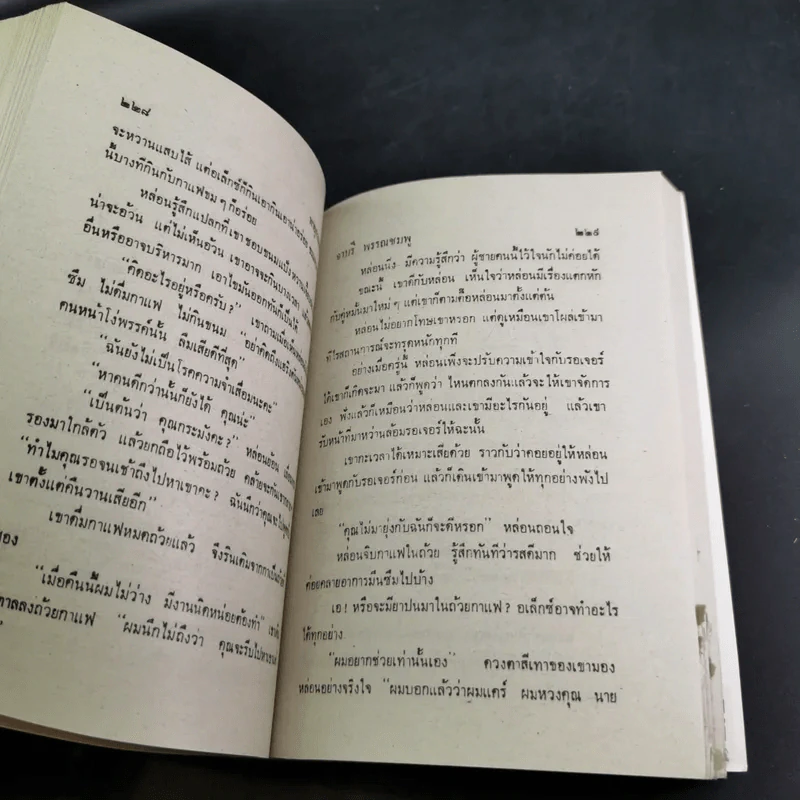 ๒๒๘
จะหวานแสบไส้ แต่อเล็กซ์ก็กินเอากินเอาน่าอร่อย
นี้บางทีกินกับกาแฟขมๆ ก็อร่อย
หล่อนรู้สึกแปลกที่เขาชอบขนมแป้งหวาน
น่าจะอ้วน แต่ไม่เห็นอ้วน เขาอาจจะกินบางเวลา
อื่นหรืออาจบริหารมาก เอาไขมันออกทันก็เป็นได้
“คิดอะไรอยู่หรือครับ?” เขาถามเมื่อเห็น
ซึม ไม่ดื่มกาแฟ ไม่กินขนม “อย่าคิดถึง
คนหน้าโง่พรรค์นั้น ลืมเสียดีที่สุด”
“ฉันยังไม่เป็นโรคความจำเสื่อมนะคะ”
“หาคนดีกว่านั้นก็ยังได้ คุณน่ะ”
“เป็นต้นว่า คุณกระมังคะ?” หล่อนย้อน เมื่อ
รองมาใกล้ตัว แล้วยกถือไว้พร้อมถ้วย คล้ายจะกัน
“ทำไมคุณรอจนเช้าถึงไปหาเขาคะ? ฉันนึกว่าคุณจะไป
เขาตั้งแต่คืนวานเสียอีก”
เขาดื่มกาแฟหมดถ้วยแล้ว จึงรินเติมจากกา
ของ
“เมื่อคืนนี้ผมไม่ว่าง มีงานนิดหน่อยต้องทำ” เขา
ตาลลงถ้วยกาแฟ “ผมนึกไม่ถึงว่า คุณจะรีบไป
๒๒๙
จามรี พรรณชมพู
หล่อนนิ่ง มีความรู้สึกว่า ผู้ชายคนนี้ไว้ใจนักไม่ค่อยได้
ขณะนี้ เขาดีกับหล่อน เห็นใจว่าหล่อนมีเรื่องแตกหัก
กับคู่หมั้นมาใหม่ๆ แต่เขาก็ตามตื๊อหล่อนมาตั้งแต่ต้น
หล่อนไม่อยากโทษเขาหรอก แต่ดูเหมือนเขาโผล่เข้ามา
ทีไรสถานการณ์จะทรุดหนักทุกที
อย่างเมื่อครู่นี้ หล่อนเพิ่งจะปรับความเข้าใจกับรอเจอร์
ได้เขาก็เกิดจะมา แล้วก็พูดว่า ไหนตกลงกันแล้วจะให้เขาจัดการ
เอง ฟังแล้วก็เหมือนว่าหล่อนและเขามีอะไรกันอยู่ แล้วเขา
รับหน้าที่มาหว่านล้อมรอเจอร์ให้ฉะนั้น
เขากะเวลาได้เหมาะเสียด้วย ราวกับว่าคอยอยู่ให้หล่อน
เข้ามาพูดกับรอเจอร์ก่อน แล้วก็เดินเข้ามาพูดให้ทุกอย่างพังไป
เลย
“คุณไม่มายุ่งกับฉันก็จะดีหรอก” หล่อนถอนใจ
หล่อนจิบกาแฟในถ้วย รู้สึกทันทีว่ารสดีมาก ช่วยให้
ค่อยคลายอาการมึนซึมไปบ้าง
เอ! หรือจะมียาปนมาในถ้วยกาแฟ? อเล็กซ์อาจทำอะไร
ได้ทุกอย่าง
“ผมอยากช่วยเท่านั้นเอง” ดวงตาสีเทาของเขามอง
หล่อนอย่างจริงใจ “ผมบอกแล้วว่าผมแคร์ ผมหวงคุณ นาย